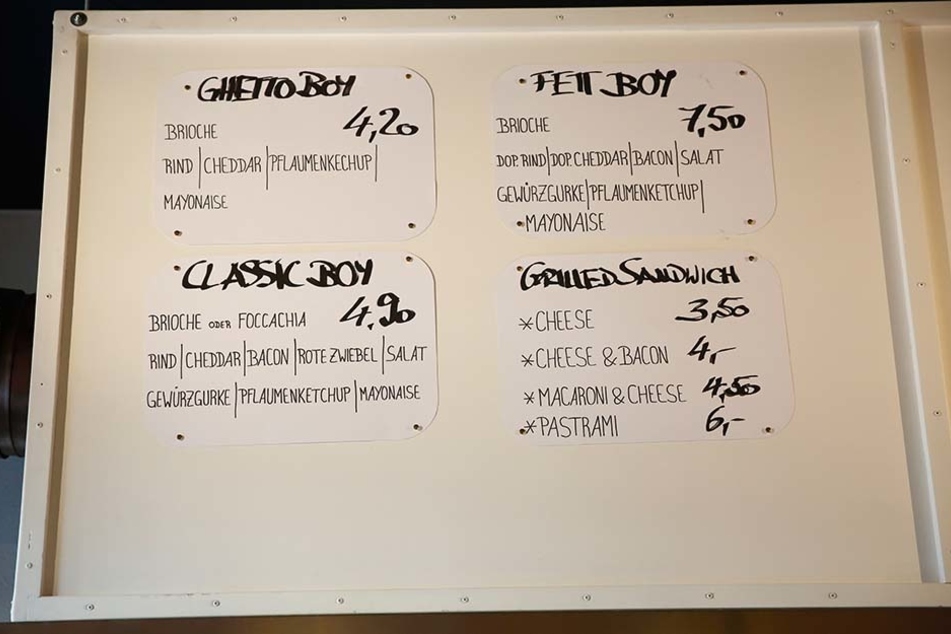 GHETTO BOY
BRIOCHE 4,20
RIND | CHEDDAR | PFLAUMENKECHUP |
MAYONAISE
FETT BOY
BRIOCHE 7,50
DOP. RIND | DOP. CHEDDAR | BACON | SALAT
GEWÜRZGURKE | PFLAUMENKETCHUP |
MAYONAISE
CLASSIC BOY
BRIOCHE ODER FOCCACHIA 4,90
RIND | CHEDDAR | BACON | ROTE ZWIEBEL | SALAT
GEWÜRZGURKE | PFLAUMENKETCHUP | MAYONAISE
GRILLED SANDWICH
* CHEESE 3,50
* CHEESE & BACON 4,-
* MACARONI & CHEESE 4,50
* PASTRAMI 6,-